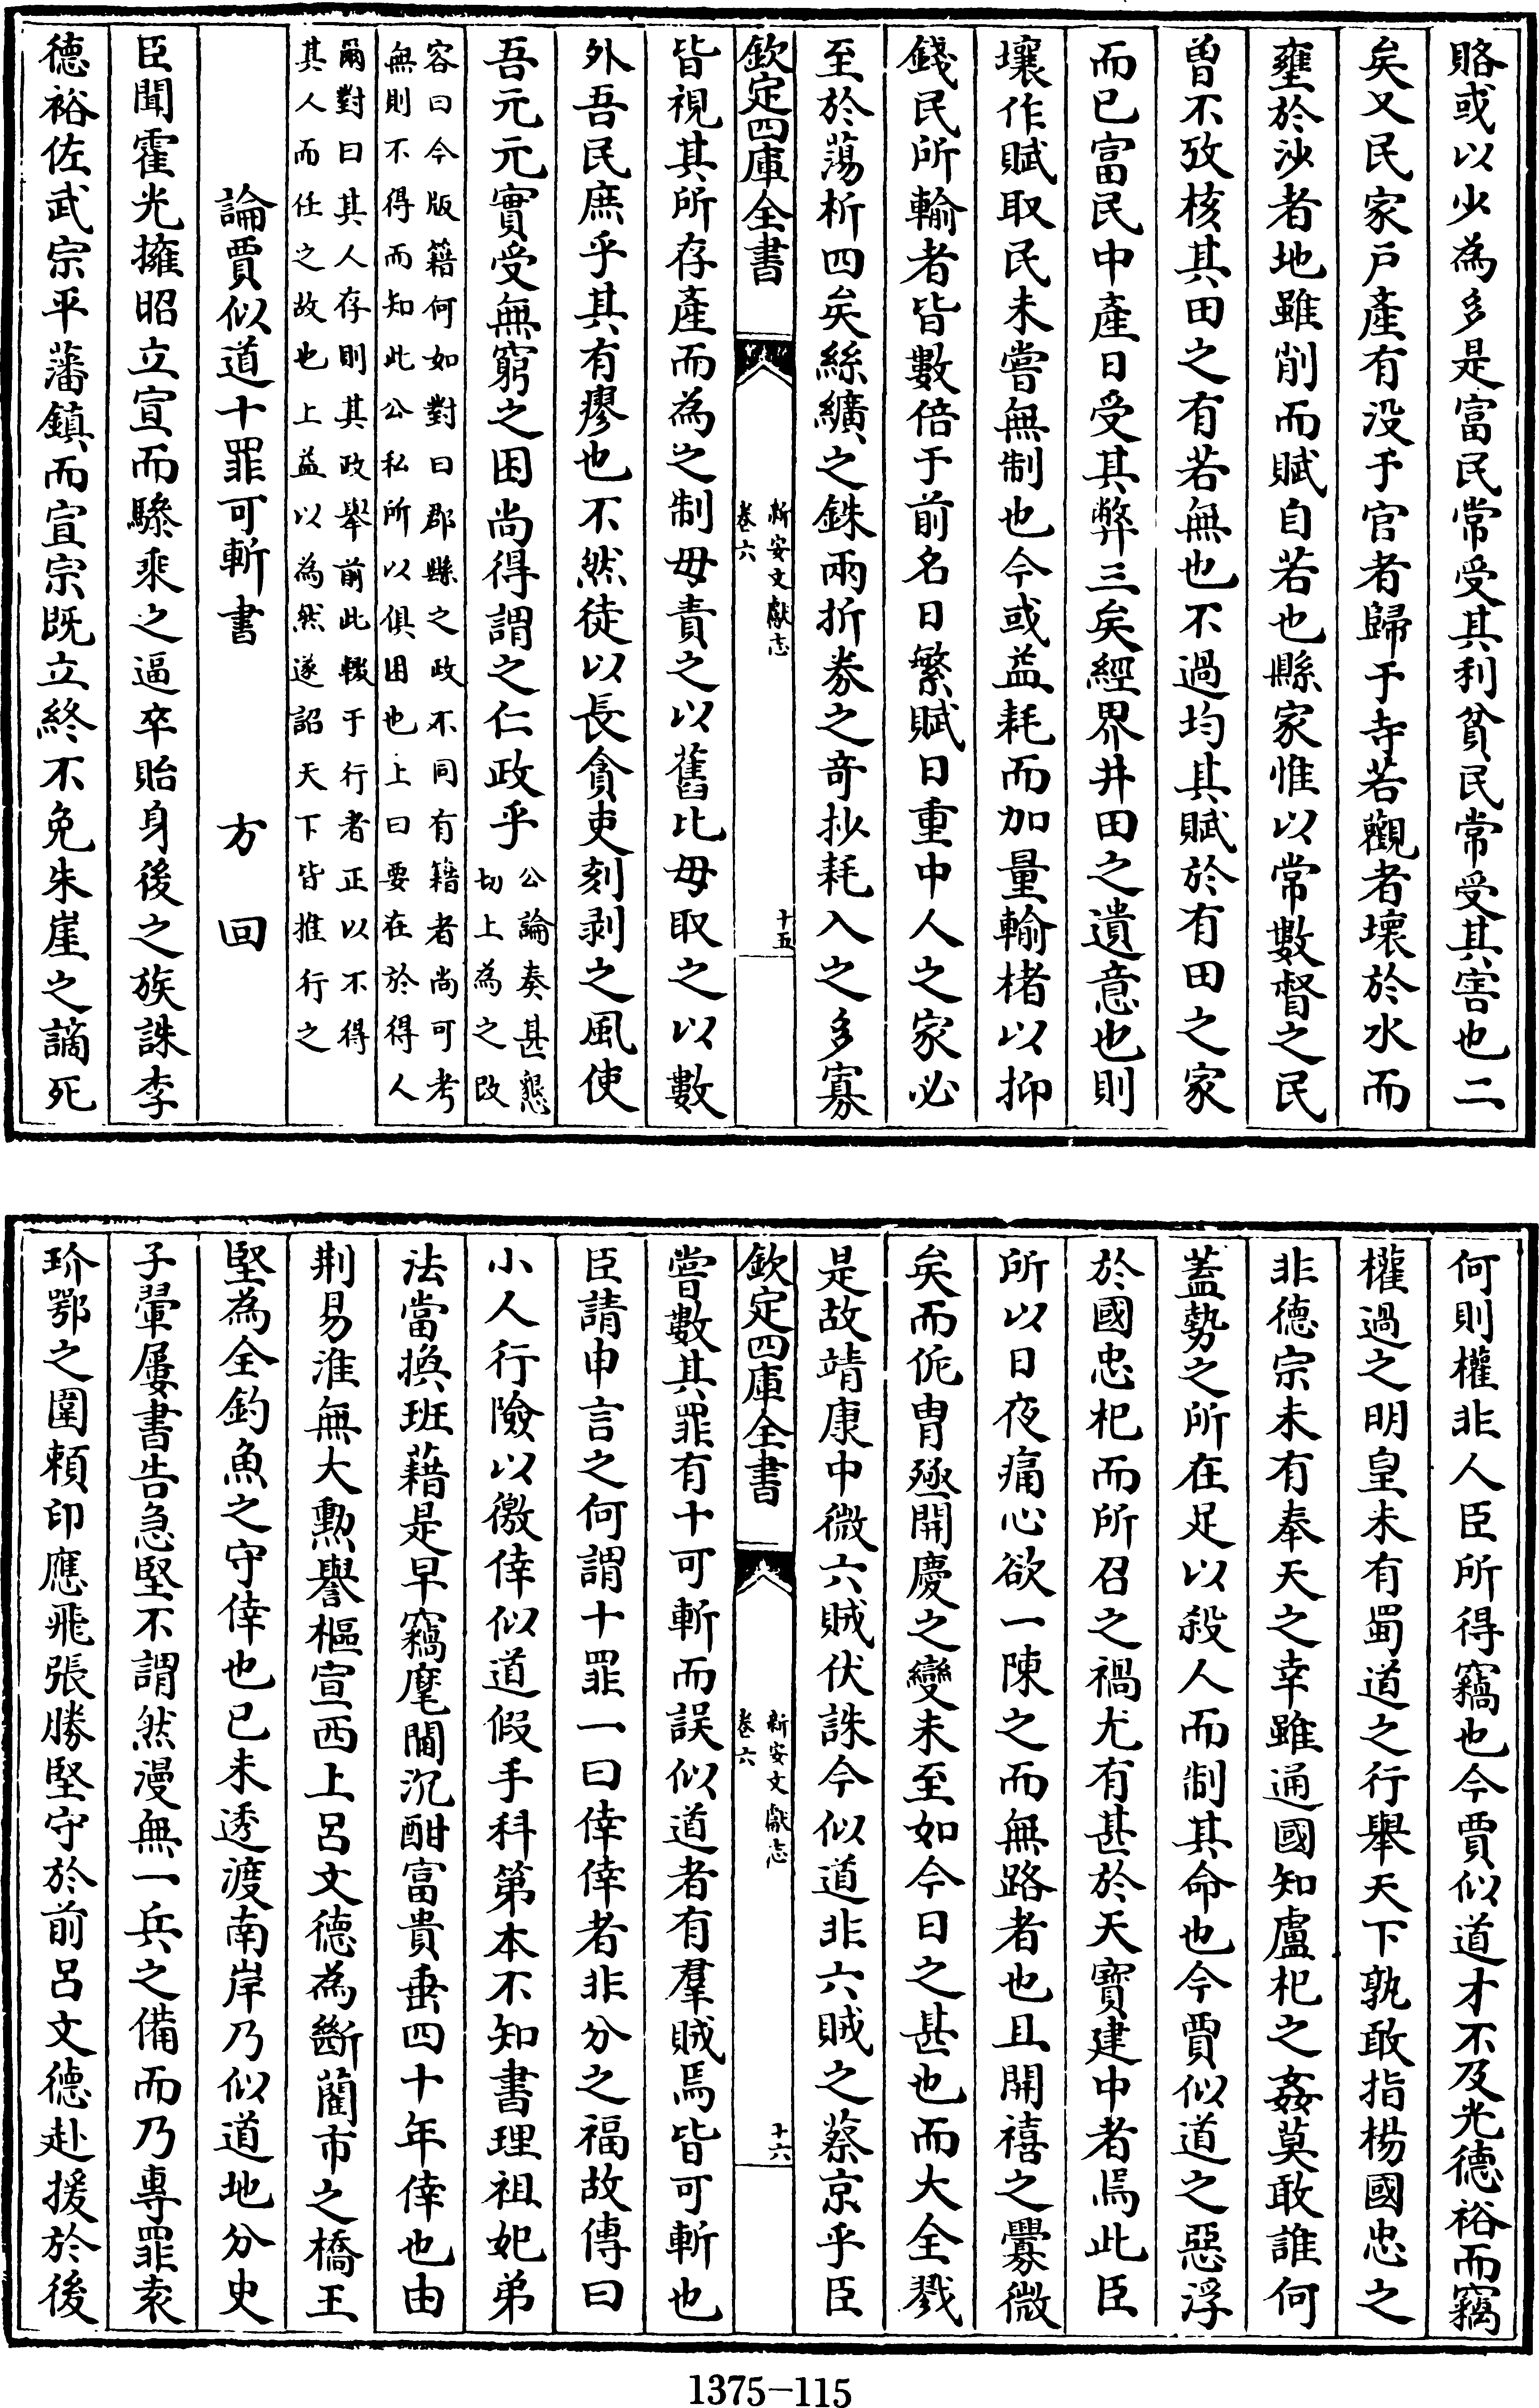 賂或以少為多是富民常受其利貧民常受其害也二
矣又民家戸產有没于官者歸于寺若觀者壞於水而
壅於沙者地雖削而賦自若也縣家惟以常數督之民
曽不攷核其田之有若無也不過均其賦於有田之家
而已富民中產日受其弊三矣經界井田之遺意也則
壤作賦取民未嘗無制也今或益耗而加量輸楮以抑
錢民所輸者皆數倍于前名日繁賦日重中人之家必
至於蕩析四矣絲纊之銖兩折劵之竒抄耗入之多寡
欽定四庫全書
新安文獻志
卷六
十五
皆視其所存產而為之制毋責之以舊比毋取之以數
外吾民庶乎其有瘳也不然徒以長貪吏刻剥之風使
吾元元實受無窮之困尚得謂之仁政乎
公論奏甚懇
切上為之改
容曰今版籍何如對曰郡縣之政不同有籍者尚可考
無則不得而知此公私所以俱困也上曰要在於得人
爾對曰其人存則其政舉前此輟于行者正以不得
其人而任之故也上益以為然遂詔天下皆推行之
論賈似道十罪可斬書 方回
臣聞霍光擁昭立宣而驂乘之逼卒貽身後之族誅李
德裕佐武宗平藩鎮而宣宗既立終不免朱崖之謫死
何則權非人臣所得竊也今賈似道才不及光德裕而竊
權過之明皇未有蜀道之行舉天下孰敢指楊國忠之
非德宗未有奉天之幸雖通國知盧杞之姦莫敢誰何
蓋勢之所在足以殺人而制其命也今賈似道之惡浮
於國忠杞而所召之禍尤有甚於天寶建中者焉此臣
所以日夜痛心欲一陳之而無路者也且開禧之釁微
矣而侂胄殛開慶之變未至如今日之甚也而大全戮
是故靖康中微六賊伏誅今似道非六賊之蔡京乎臣
欽定四庫全書
新安文獻志
卷六
十六
嘗數其罪有十可斬而誤似道者有羣賊焉皆可斬也
臣請申言之何謂十罪一曰倖倖者非分之福故傳曰
小人行險以徼倖似道假手科第本不知書理祖妃弟
法當換班藉是早竊麾閫沉酣富貴垂四十年倖也由
荆易淮無大勲譽樞宣西上呂文德為斷藺市之橋王
堅為全釣魚之守倖也已未透渡南岸乃似道地分史
子翬屢書告急堅不謂然漫無一兵之備而乃專罪袁
玠鄂之圍頼印應飛張勝堅守於前呂文德赴援於後
1375-115